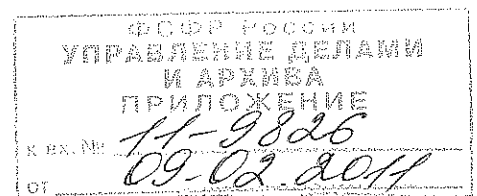 ФСФР России
УПРАВЛЕНИЕ ДЕЛАМИ
И АРХИВА
ПРИЛОЖЕНИЕ
к вх. № 11-9826
от 09-02.2011